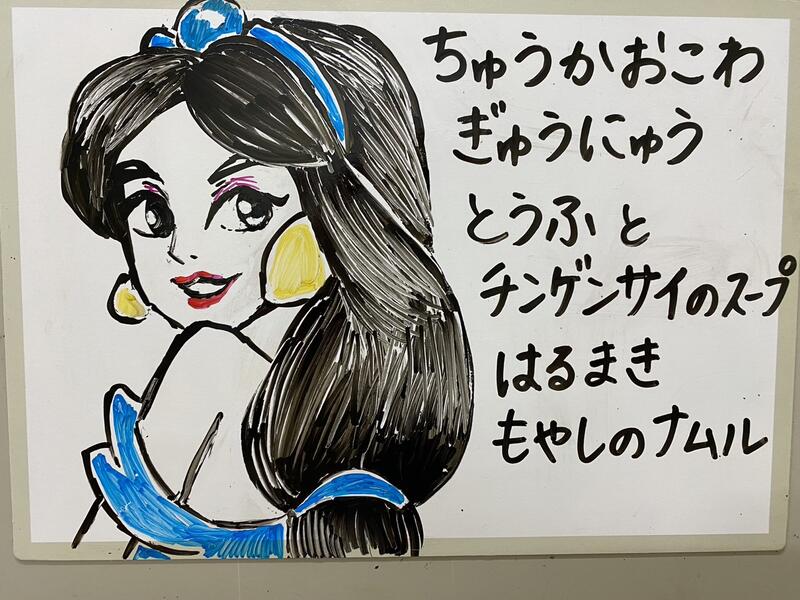 ちゅうかおこわ
ぎゅうにゅう
とうふと
チンゲンサイのスープ
はるまき
もやしのナムル